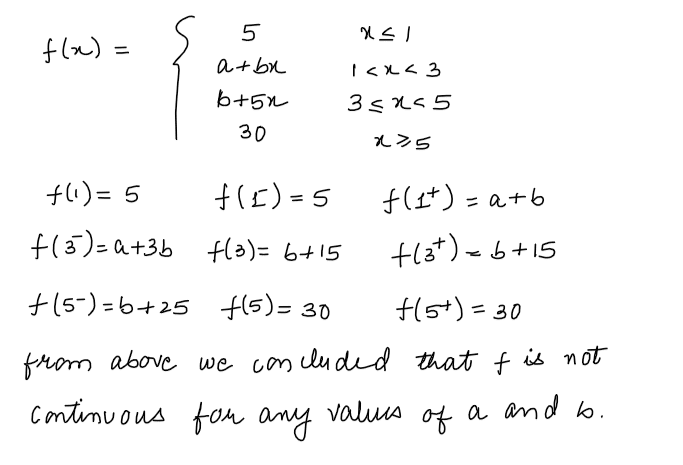 f(x) = { 5 x ≤ 1
a+bx 1 < x < 3
b+5x 3 ≤ x < 5
30 x ≥ 5
f(1) = 5 f(1⁻) = 5 f(1⁺) = a+b
f(3⁻) = a+3b f(3) = b+15 f(3⁺) = b+15
f(5⁻) = b+25 f(5) = 30 f(5⁺) = 30
from above we concluded that f is not
continuous for any values of a and b.